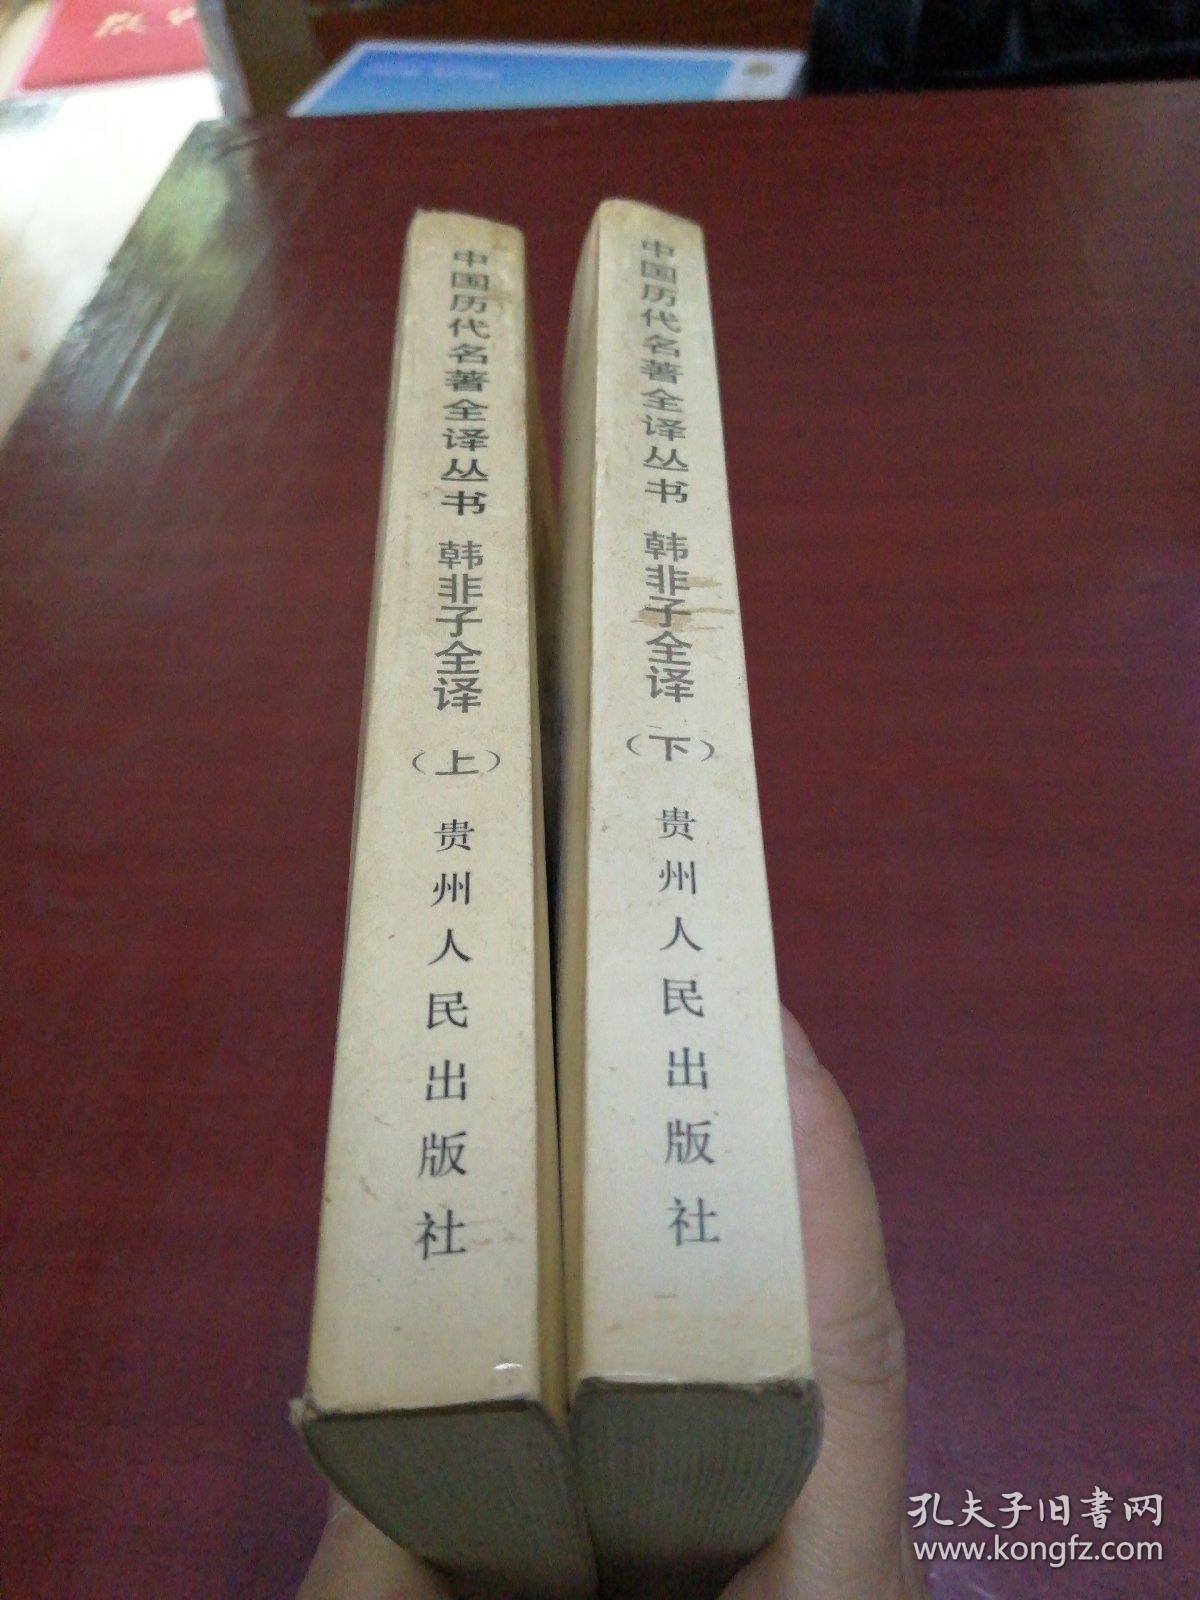 中国历代名著全译丛书 韩非子全译（上） 贵州人民出版社
中国历代名著全译丛书 韩非子全译（下） 贵州人民出版社
孔夫子旧書网
www.kongfz.com